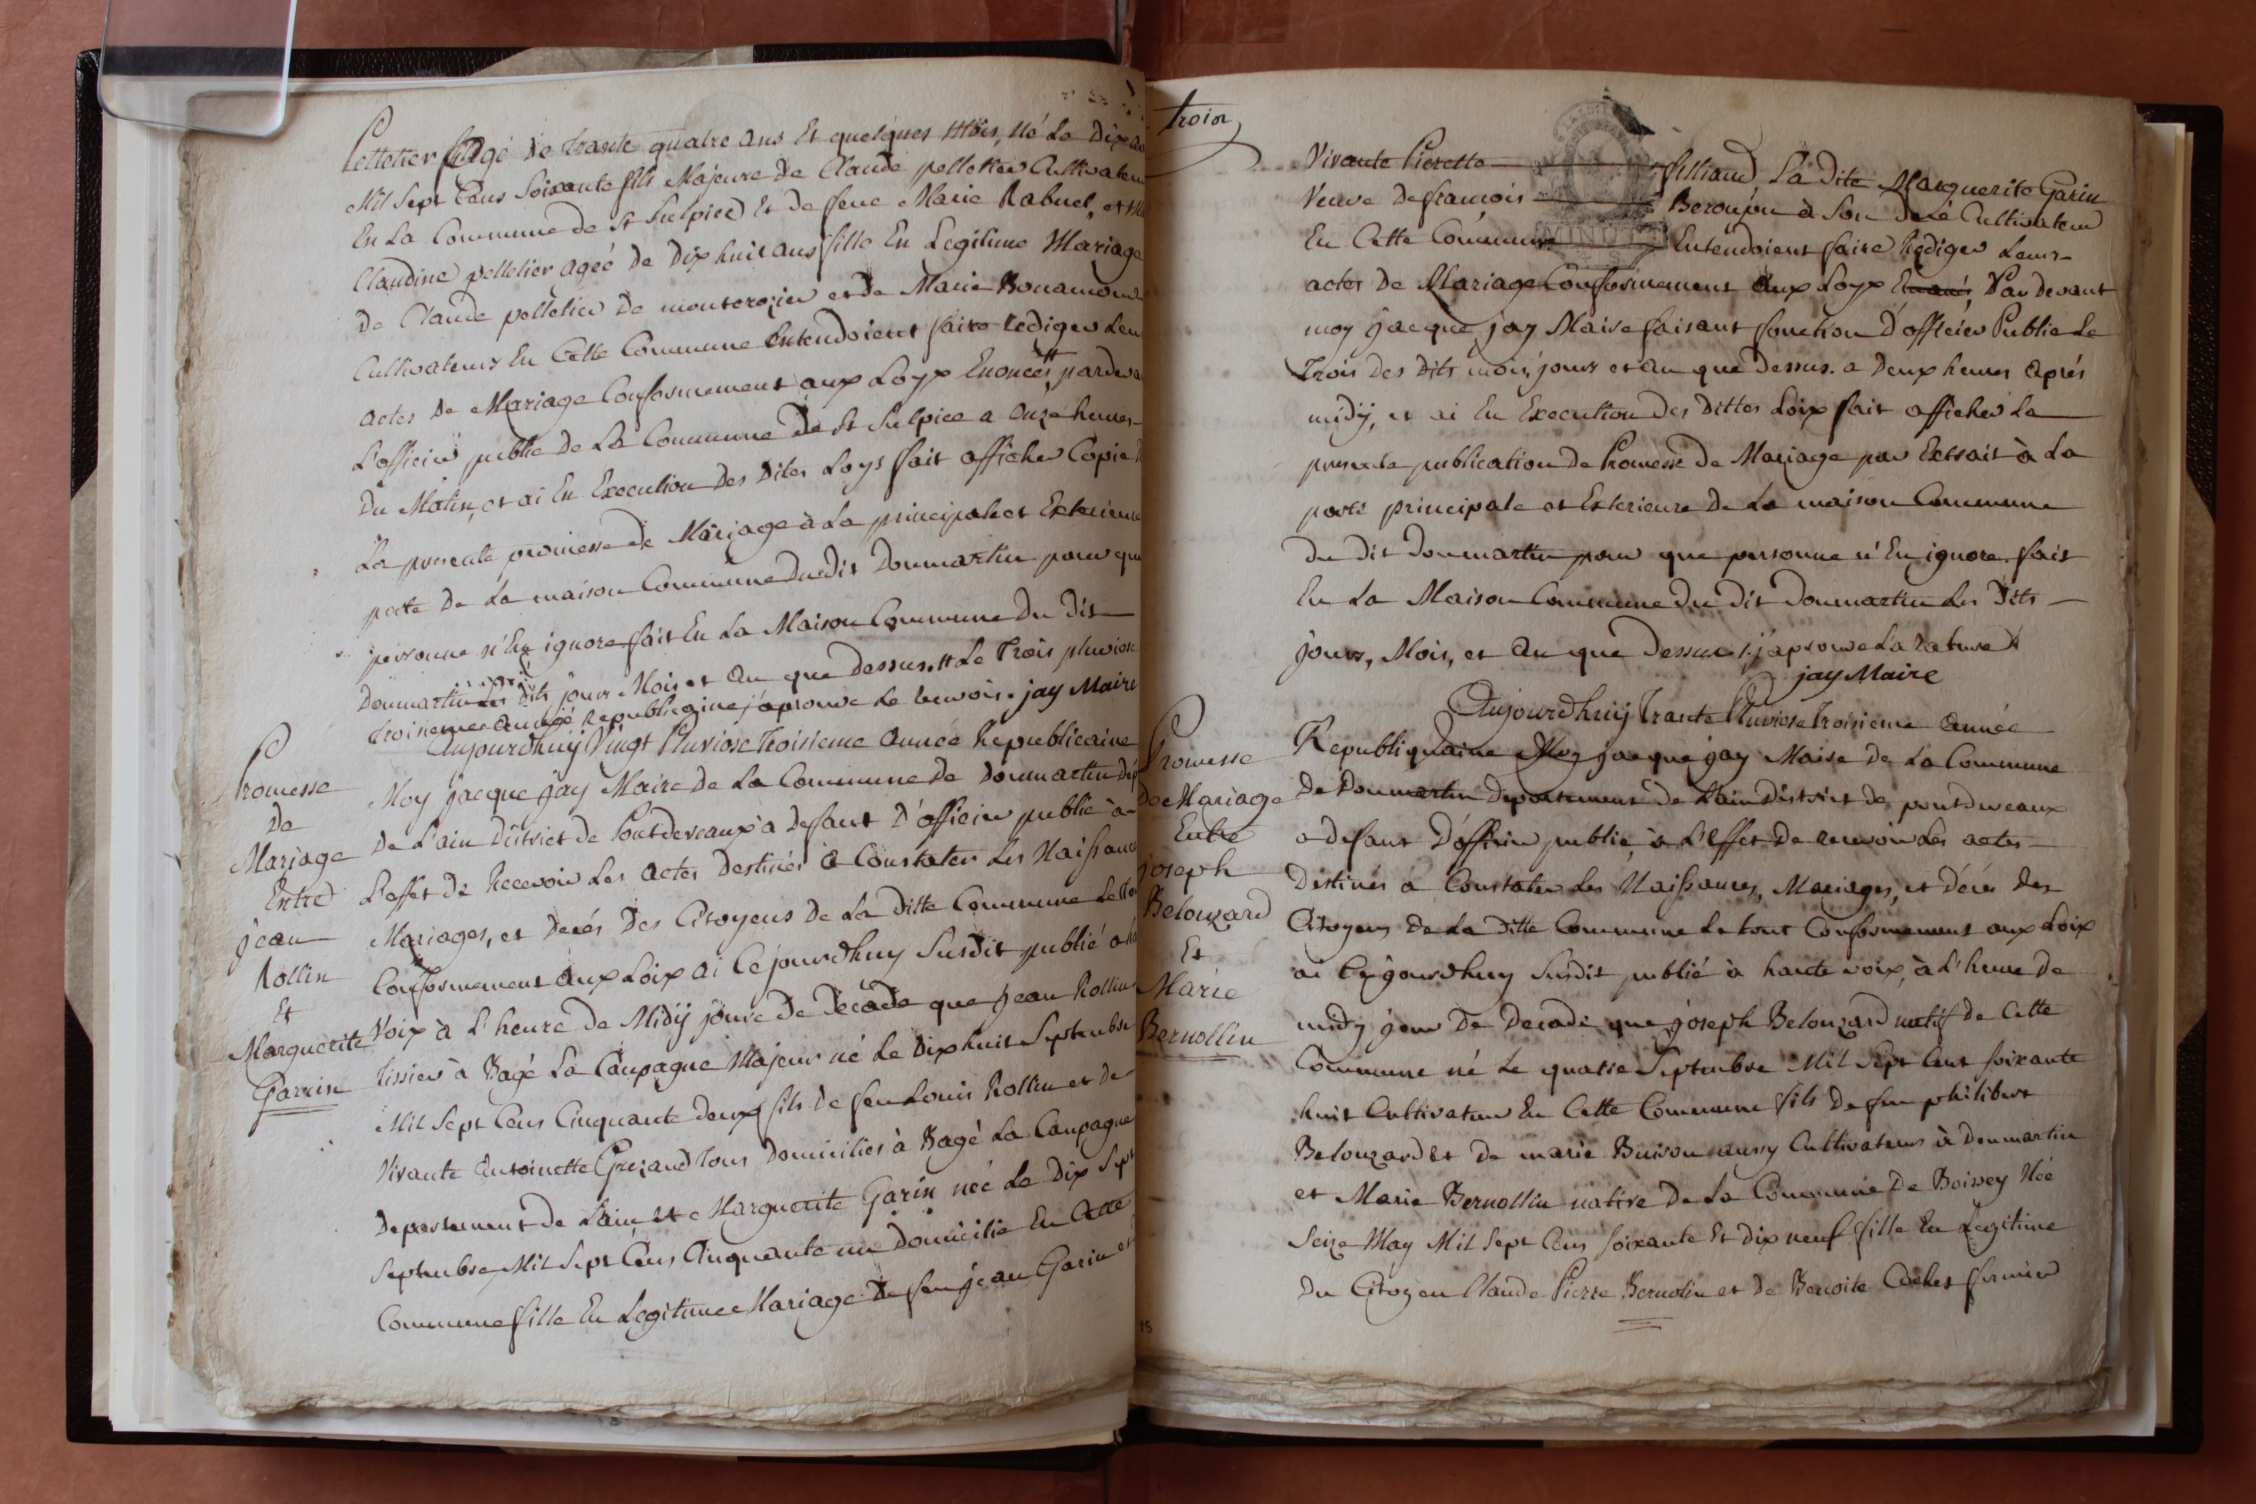 Pelletier Agé de trante quatre ans Et quelques Mois, Né Le Dix
Mil Sept Cens Soixante fils Majeure de Claude pelletier Cultivateur
En La Commune de St Sulpice Et de feue Marie Rabuel, et
Claudine pelletier ageé de Dixhuit ans fille En Legitime Mariage
de Claude pelletier de montcrozier et de Marie Bonamour
Cultivateurs En Cette Commune Entendoient faire rediger Leur
actes de Mariage Conformement aux Loyx Enoncées pardeva
L'officier public de La Commune de St Sulpice a Onze heures
Du Matin, et ai En Execution des Dites Loys fait afficher Copie
La presente promesse de Mariage à La principale et Exterieure
porte de La maison Commune dudit Donmartin pour que
personne n'En ignore fait En La Maison Commune du dit
Donmartin Les Dits jour Mois et an que dessus. Le Trois pluviose
troisieme année Republiquine j'aprouve Le renvois. jay Maire
Promesse
De
Mariage
Entre
jean
Rollin
Et
Marguerite
Garrin
Aujourdhuÿ Vingt Pluviose Troisieme année Republicaine
Moy jacque jay Maire de La Commune de Donmartin dep
De L'ain District de Pontdevaux a defaut D'officier public à
L'effet de Recevoir Les actes destinés à Constater Les Naissances
Mariages, et decés Des Citoyens de La ditte Commune Le tout
Conformement aux Loix ai Cejourdhuy Susdit publié a
Voix à L'heure de Midÿ jour de Decade que jean Rollin
tissier à Bagé La Campagne Majeur né Le Dixhuit Septembre
Mil Sept Cens Cinquante deux fils de feu Louis Rollin et de
Vivante Antoinette Grezaud Tous Domiciliés à Bagé La Campagne
departement de L'ain Et Marguerite Garin née Le Dix Sept
Septembre Mil Sept Cens Cinquante un Domicilie En Cette
Commune fille En Legitime Mariage de feu jean Garin et
trois
Vivante Pierette filliaud La Dite Marguerite Garin
Veuve de francois Beroujon à Son decé Cultivateur
En Cette Commune Entendoient faire Rediger Leurs
actes de Mariage Conformement aux Loyx Par devant
moy jacque jay Maire faisant fonction D'officier Public Le
Trois des Dits mois, jours et an que dessus. a Deux heures après
midÿ, et ai En Execution des Dittes Loix fait afficher La
presente publication de Promesse de Mariage par Extrait à La
porte principale et Exterieure de La maison Commune
du dit Donmartin pour que personne n'En ignore. fait
En La Maison Commune du dit Donmartin Les Dits
jours, Mois, et an que Dessus j'aprouve La rature
jay Maire
Promesse
De Mariage
Entre
joseph
Belouzard
Et
Marie
Bernollin
Aujourdhuÿ Trante Pluviose Troisieme année
Republiquaine Moy jacque jay Maire de La Commune
De Donmartin departement de L'ain District de pontdeveaux
a defaut D'officier public, à L'Effet de recevoir Les actes
Destinés à Constater Les Naissances, Mariages, et décés des
Citoyens de La ditte Commune Le tout Conformement aux Loix
ai Cejourdhuy Susdit publié à haute voix, à L'heure de
midy jour De Decade que joseph Belouzard natif de Cette
Commune né Le quatre Septembre Mil Sept Cent soixante
huit Cultivateur En Cette Commune fils de feu philibert
Belouzard Et de marie Buison aussy Cultivateurs à donmartin
et Marie Bernollin native De La Commune De Boissey Née
Seize May Mil Sept Cens soixante Et dix neuf fille En Legitime
Du Citoyen Claude Pierre Bernolin et de Benoite Cochet fermier